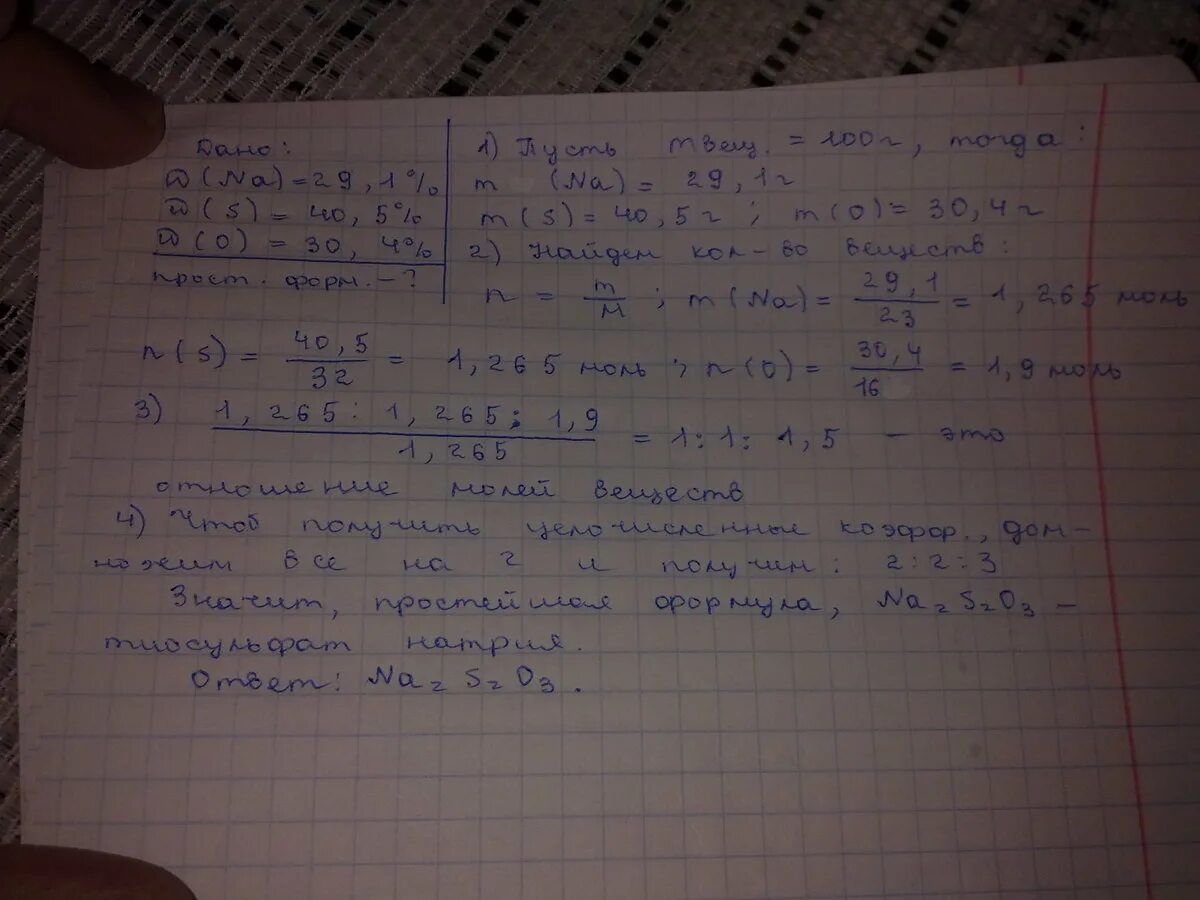 Дано:
ω(Na)=29,1%
ω(S) = 40,5%
ω(O) = 30,4%
прост. форм. - ?
1) Пусть mвещ. = 100г, тогда:
m (Na) = 29,1г
m(S) = 40,5г ; m(O) = 30,4г
2) Найдем кол-во веществ:
n = m/M ; m(Na) = 29,1/23 = 1,265 моль
n(S) = 40,5/32 = 1,265 моль ; n(O) = 30,4/16 = 1,9 моль
3) 1,265 : 1,265 : 1,9/1,265 = 1:1:1,5 - это
отношение молей веществ
4) Чтоб получить целочисленные коэфф., дом-
ножим все на 2 и получим: 2:2:3
Значит, простейшая формула, Na₂S₂O₃ -
тиосульфат натрия.
Ответ: Na₂S₂O₃.